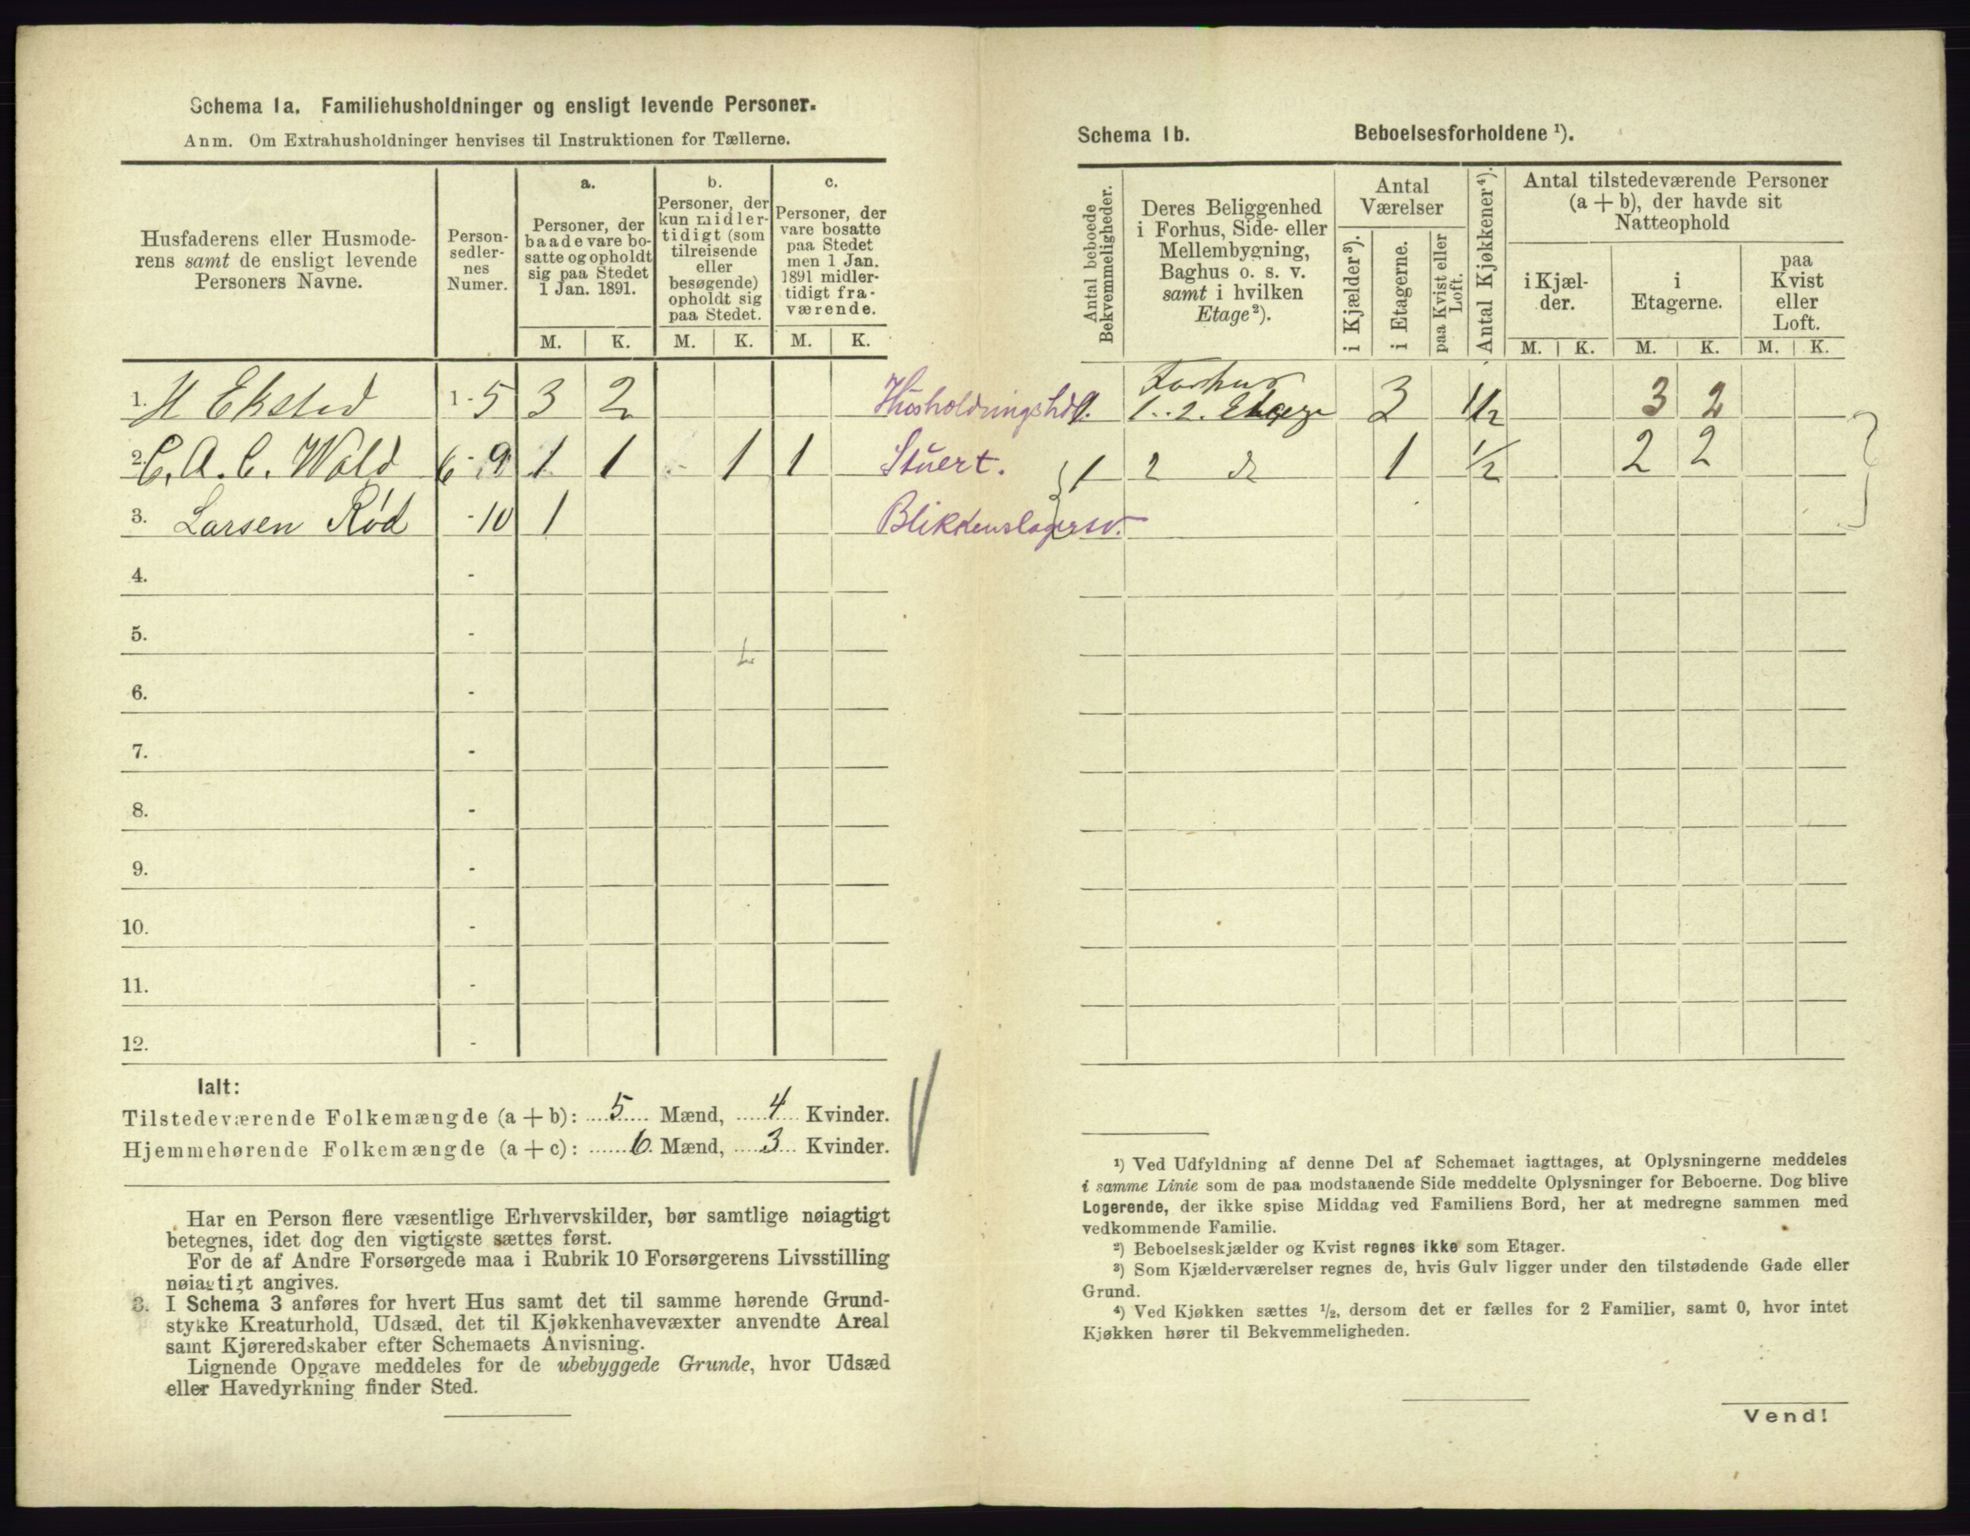 Schema 1a. Familiehusholdninger og ensligt levende Personer.
Anm. Om Extrahusholdninger henvises til Instruktionen for Tællerne.
Husfaderens eller Husmode-
rens samt de ensligt levende
Personers Navne.
Person-
sedler-
nes
Numer.
a.
Personer, der
baade vare bo-
satte og opholdt
sig paa Stedet
1 Jan. 1891.
b.
Personer, der
kun midler-
tidigt (som
tilreisende
eller
besøgende)
opholdt sig
paa Stedet.
c.
Personer, der
vare bosatte
paa Stedet
men 1 Jan.
1891 midler-
tidigt fra-
værende.
M. K. M. K. M. K.
1. H Eksted 1 - 5 3 2 Husholdningshdl.
2. C. A. C. Wold 6 - 9 1 1 1 1 Stuert.
3. Larsen Rød - 10 1 Blikkenslagersv.
4. -
5. -
6. -
7. -
8. -
9. -
10. -
11. -
12. -
Ialt:
Tilstedeværende Folkemængde (a + b): 5 Mænd, 4 Kvinder.
Hjemmehørende Folkemængde (a + c): 6 Mænd, 3 Kvinder.
Har en Person flere væsentlige Erhvervskilder, bør samtlige nøiagtigt
betegnes, idet dog den vigtigste sættes først.
For de af Andre Forsørgede maa i Rubrik 10 Forsørgerens Livsstilling
nøiagtigt angives.
3. I Schema 3 anføres for hvert Hus samt det til samme hørende Grund-
stykke Kreaturhold, Udsæd, det til Kjøkkenhavevæxter anvendte Areal
samt Kjøreredskaber efter Schemaets Anvisning.
Lignende Opgave meddeles for de ubebyggede Grunde, hvor Udsæd
eller Havedyrkning finder Sted.
Schema 1b. Beboelsesforholdene ¹).
Antal beboede
Bekvemmeligheder.
Deres Beliggenhed
i Forhus, Side- eller
Mellembygning,
Baghus o. s. v.
samt i hvilken
Etage²).
Antal
Værelser
i Kjælder³).
i Etagerne.
paa Kvist eller
Loft.
Antal Kjøkkener⁴).
Antal tilstedeværende Personer
(a + b), der havde sit
Natteophold
i Kjæl-
der.
i
Etagerne.
paa
Kvist
eller
Loft.
M. K. M. K. M. K.
Forhus
1. 2. Etage 3 1/2 3 2
1 2 do 1 1/2 2 2
¹) Ved Udfyldning af denne Del af Schemaet iagttages, at Oplysningerne meddeles
i samme Linie som de paa modstaaende Side meddelte Oplysninger for Beboerne. Dog blive
Logerende, der ikke spise Middag ved Familiens Bord, her at medregne sammen med
vedkommende Familie.
²) Beboelseskjælder og Kvist regnes ikke som Etager.
³) Som Kjælderværelser regnes de, hvis Gulv ligger under den tilstødende Gade eller
Grund.
⁴) Ved Kjøkken sættes ½, dersom det er fælles for 2 Familier, samt 0, hvor intet
Kjøkken hører til Bekvemmeligheden.
Vend!